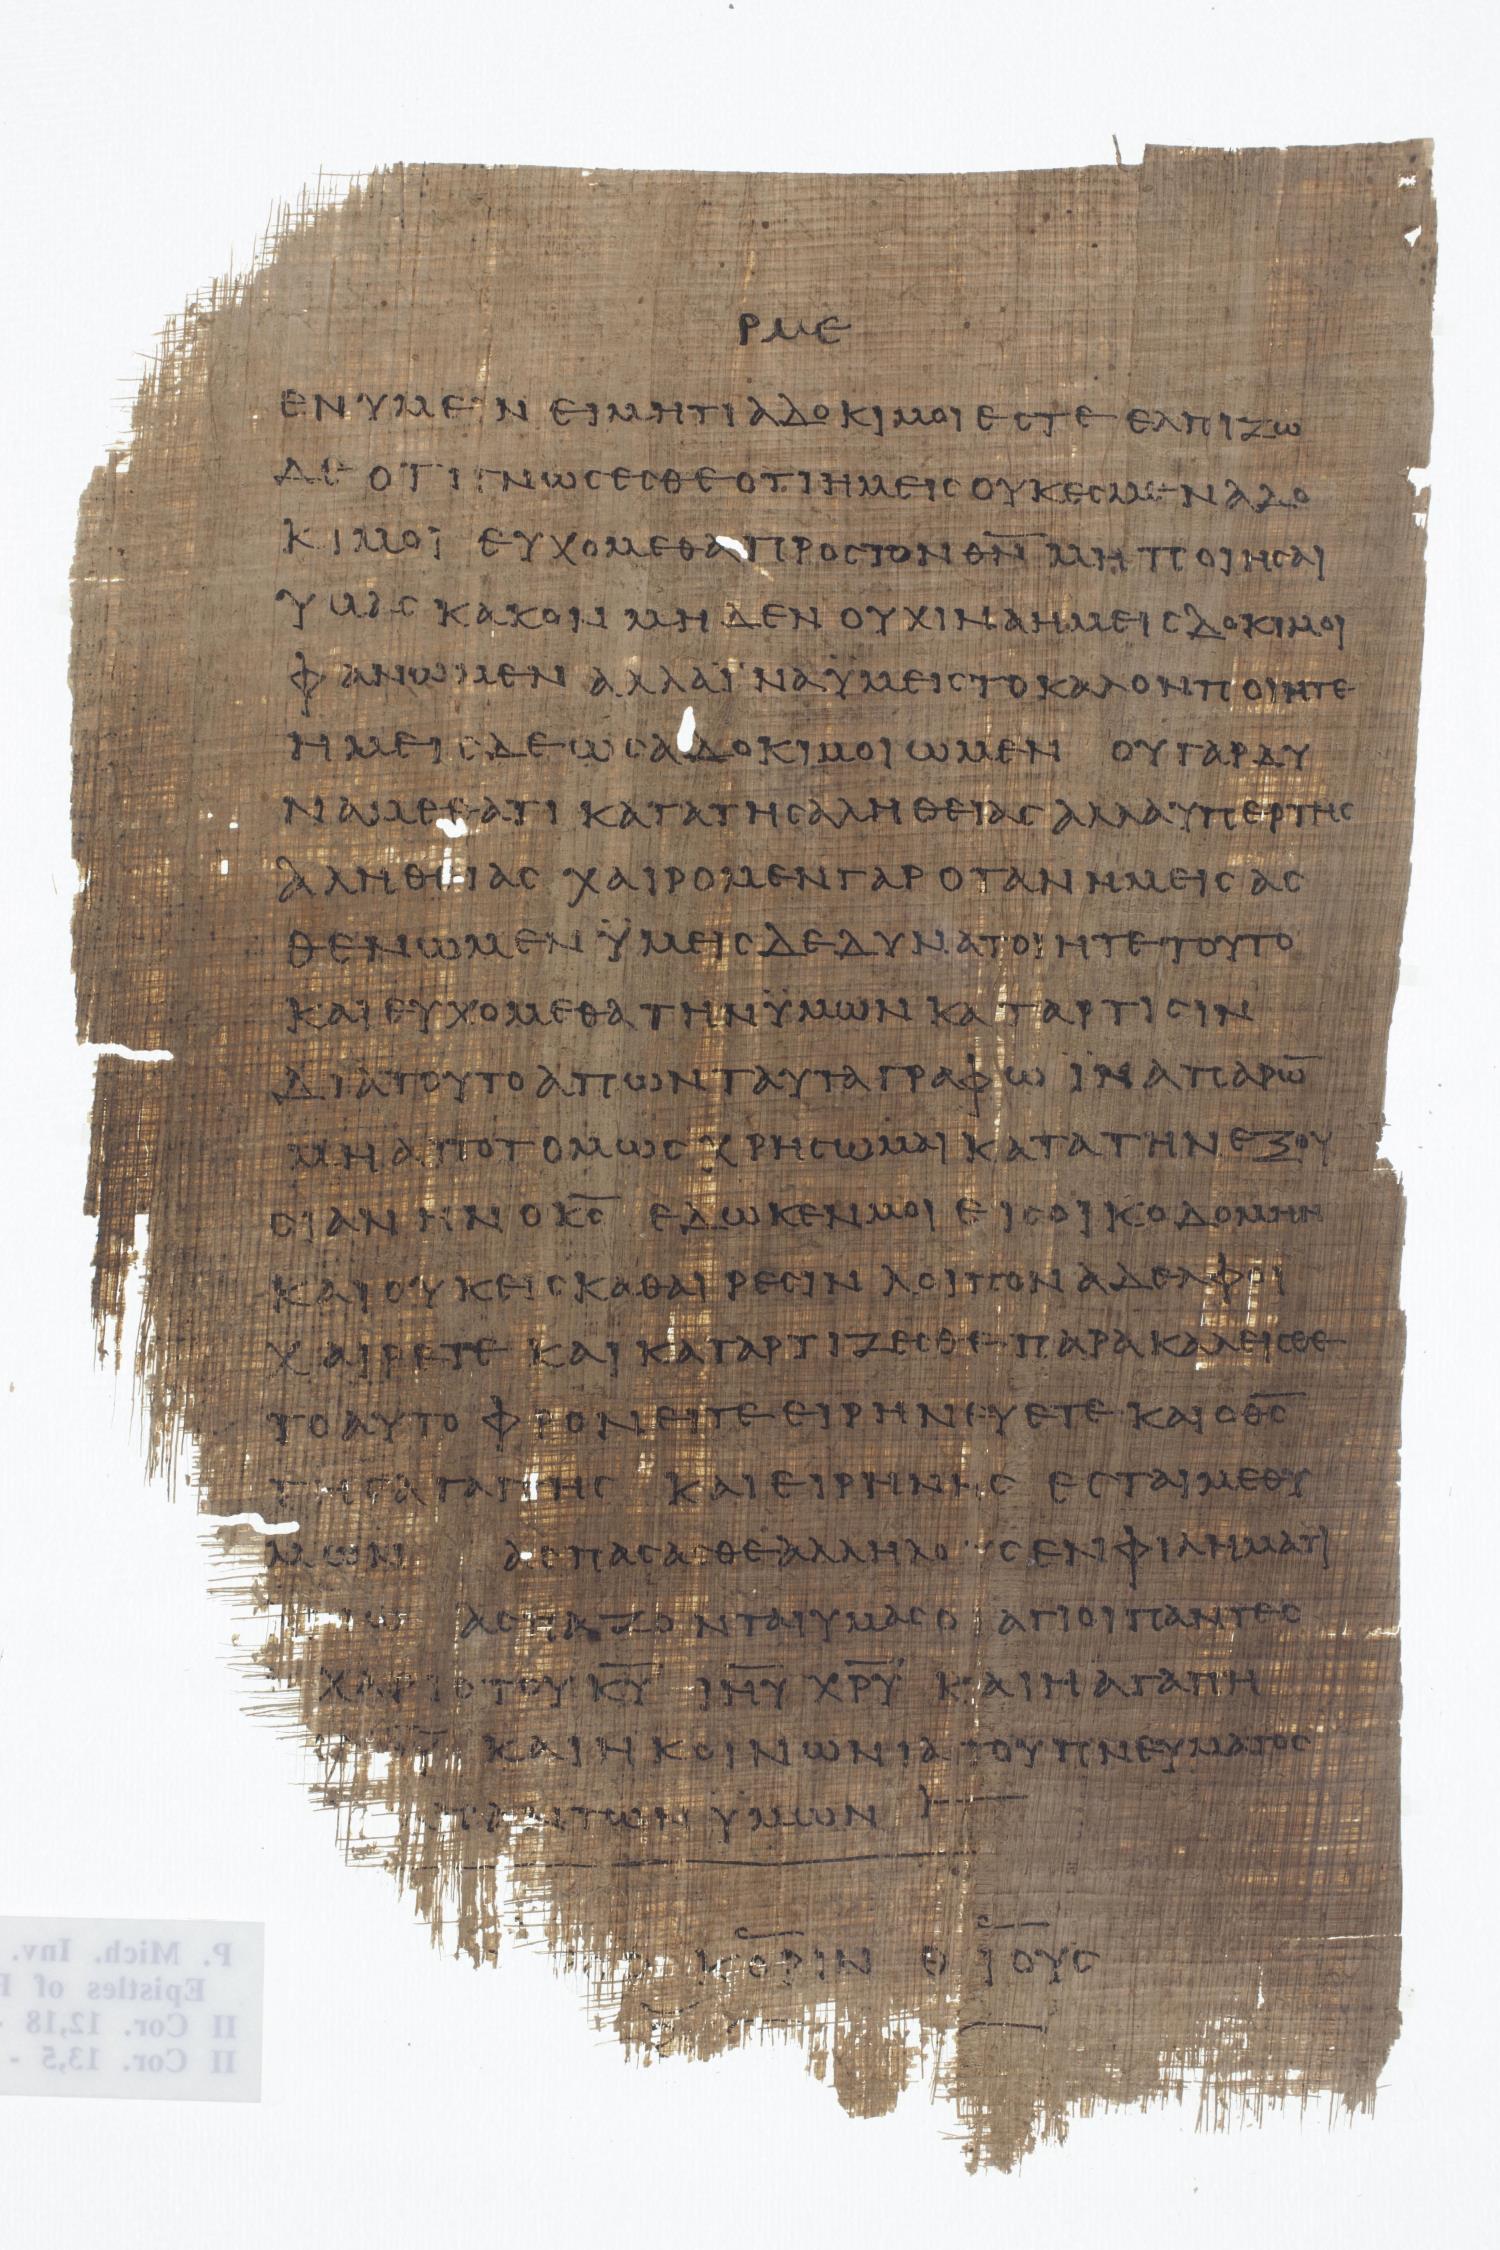 ΡΜΕ
ΕΝ ΥΜΕΙΝ ΕΙΜΗΤΙ ΑΔΟΚΙΜΟΙ ΕΣΤΕ ΕΛΠΙΖΩ
ΔΕ ΟΤΙ ΓΝΩΣΕΣΘΕ ΟΤΙ ΗΜΕΙΣ ΟΥΚ ΕΣΜΕΝ ΑΔΟ
ΚΙΜΟΙ ΕΥΧΟΜΕΘΑ ΠΡΟΣ ΤΟΝ Θ̅Ν̅ ΜΗ ΠΟΙΗΣΑΙ
ΥΜΑΣ ΚΑΚΟΝ ΜΗΔΕΝ ΟΥΧ ΙΝΑ ΗΜΕΙΣ ΔΟΚΙΜΟΙ
ΦΑΝΩΜΕΝ ΑΛΛΑ ΪΝΑ ΫΜΕΙΣ ΤΟ ΚΑΛΟΝ ΠΟΙΗΤΕ
ΗΜΕΙΣ ΔΕ ΩΣ ΑΔΟΚΙΜΟΙ ΩΜΕΝ ΟΥ ΓΑΡ ΔΥ
ΝΑΜΕΘΑ ΤΙ ΚΑΤΑ ΤΗΣ ΑΛΗΘΕΙΑΣ ΑΛΛΑ ΥΠΕΡ ΤΗΣ
ΑΛΗΘΕΙΑΣ ΧΑΙΡΟΜΕΝ ΓΑΡ ΟΤΑΝ ΗΜΕΙΣ ΑΣ
ΘΕΝΩΜΕΝ ΫΜΕΙΣ ΔΕ ΔΥΝΑΤΟΙ ΗΤΕ ΤΟΥΤΟ
ΚΑΙ ΕΥΧΟΜΕΘΑ ΤΗΝ ΫΜΩΝ ΚΑΤΑΡΤΙΣΙΝ
ΔΙΑ ΤΟΥΤΟ ΑΠΩΝ ΤΑΥΤΑ ΓΡΑΦΩ ΙΝΑ ΠΑΡΩ̅
ΜΗ ΑΠΟΤΟΜΩΣ ΧΡΗΣΩΜΑΙ ΚΑΤΑ ΤΗΝ ΕΞΟΥ
ΣΙΑΝ ΗΝ Ο Κ̅Σ̅ ΕΔΩΚΕΝ ΜΟΙ ΕΙΣ ΟΙΚΟΔΟΜΗΝ
ΚΑΙ ΟΥΚ ΕΙΣ ΚΑΘΑΙΡΕΣΙΝ ΛΟΙΠΟΝ ΑΔΕΛΦΟΙ
ΧΑΙΡΕΤΕ ΚΑΙ ΚΑΤΑΡΤΙΖΕΣΘΕ ΠΑΡΑΚΑΛΕΙΣΘΕ
ΤΟ ΑΥΤΟ ΦΡΟΝΕΙΤΕ ΕΙΡΗΝΕΥΕΤΕ ΚΑΙ Ο Θ̅Σ̅
ΤΗΣ ΑΓΑΠΗΣ ΚΑΙ ΕΙΡΗΝΗΣ ΕΣΤΑΙ ΜΕΘ Υ
ΜΩΝ ΑΣΠΑΣΑΣΘΕ ΑΛΛΗΛΟΥΣ ΕΝ ΦΙΛΗΜΑΤΙ
ΑΣΠΑΖΟΝΤΑΙ ΥΜΑΣ ΟΙ ΑΓΙΟΙ ΠΑΝΤΕΣ
ΧΑΡΙΣ ΤΟΥ Κ̅Υ̅ Ι̅Η̅Υ̅ Χ̅Ρ̅Υ̅ ΚΑΙ Η ΑΓΑΠΗ
ΚΑΙ Η ΚΟΙΝΩΝΙΑ ΤΟΥ ΠΝΕΥΜΑΤΟΣ
ΠΑΝΤΩΝ ΥΜΩΝ
ΚΟΡΙΝΘΙΟΥΣ
P. Mich. Inv.
Epistles of
II Cor. 12,18 -
II Cor. 13,5 -